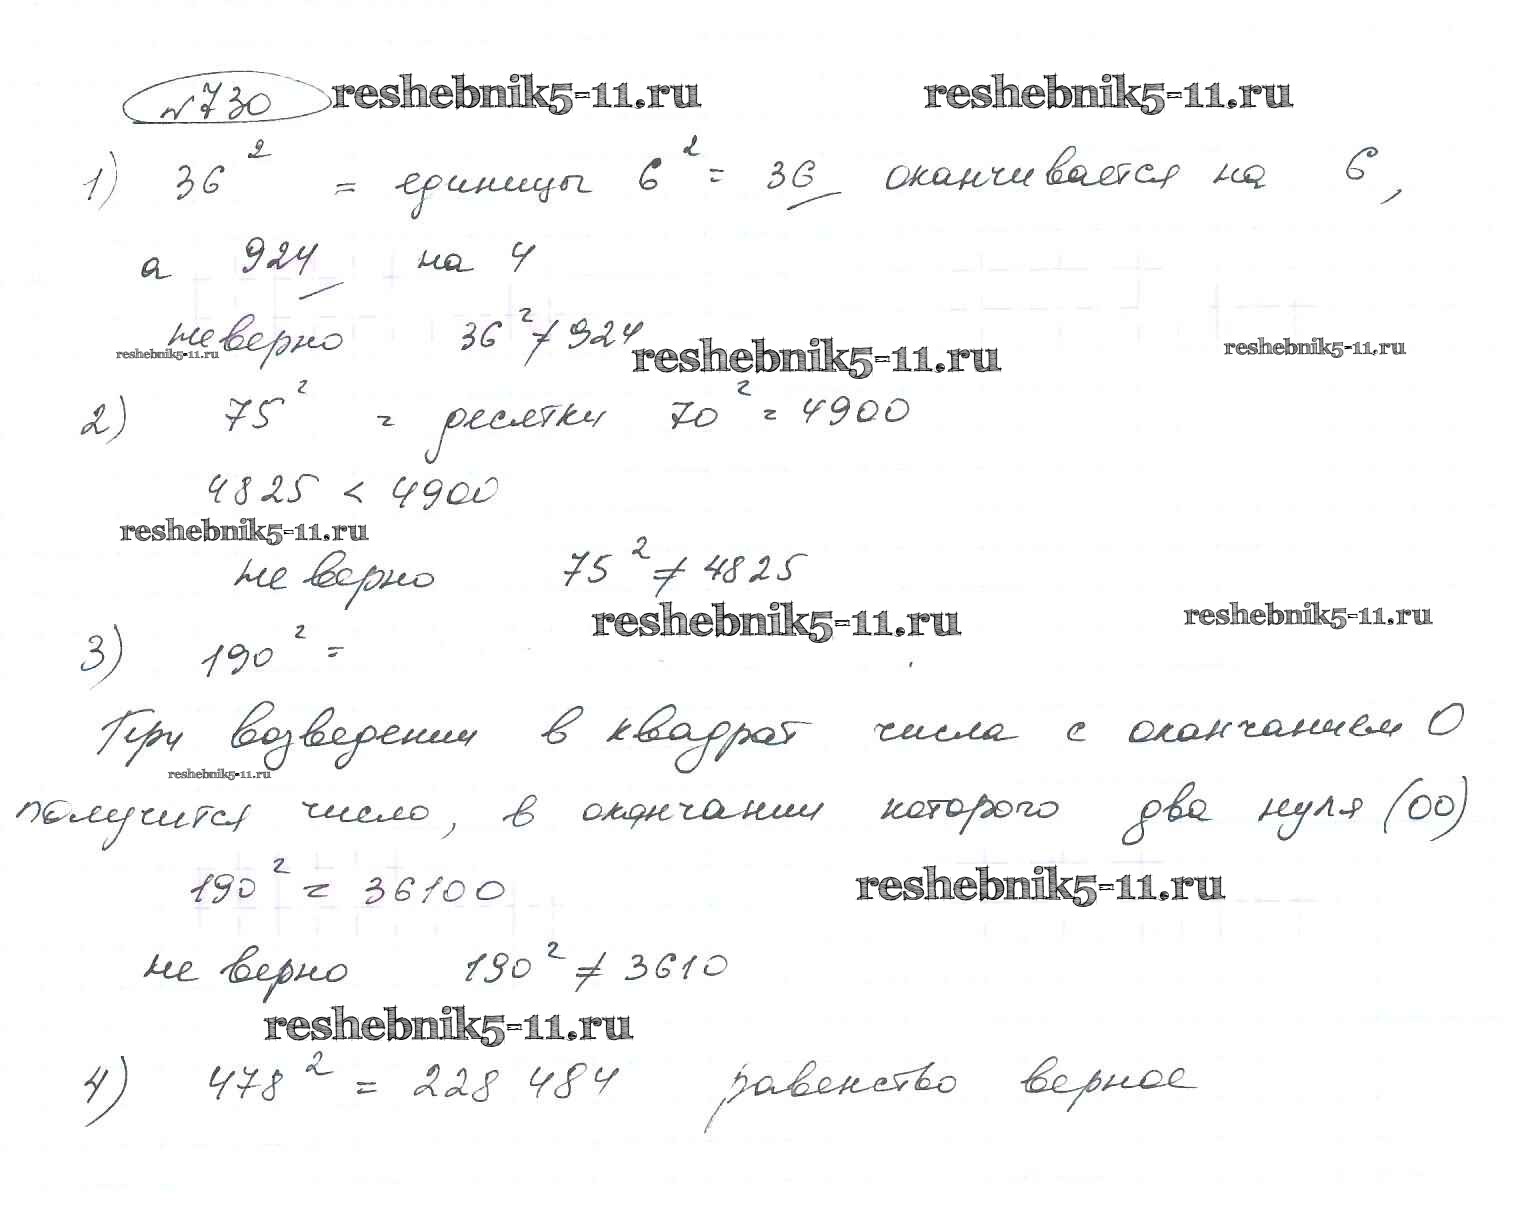 №730 reshebnik5-11.ru reshebnik5-11.ru
1) 36² = единицы 6² = 36 оканчивается на 6,
а 924 на 4
неверно 36² ≠ 924
reshebnik5-11.ru reshebnik5-11.ru reshebnik5-11.ru
2) 75² = десятки 70² = 4900
4825 < 4900
reshebnik5-11.ru
не верно 75² ≠ 4825
reshebnik5-11.ru reshebnik5-11.ru
3) 190² =
При возведении в квадрат числа с окончанием 0
reshebnik5-11.ru
получится число, в окончании которого два нуля (00)
190² = 36100 reshebnik5-11.ru
не верно 190² ≠ 3610
reshebnik5-11.ru
4) 478² = 228 484 равенство верное